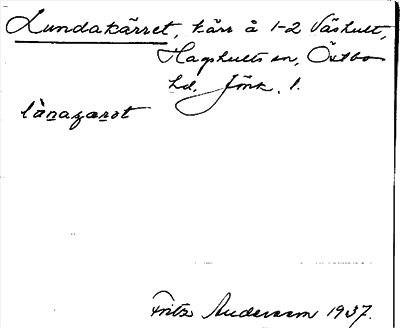 Lundakärret, kärr å 1-2 Våshult,
Hagshults sn, Östbo
hd. Jönk. l.
Fritz Andersson 1937.